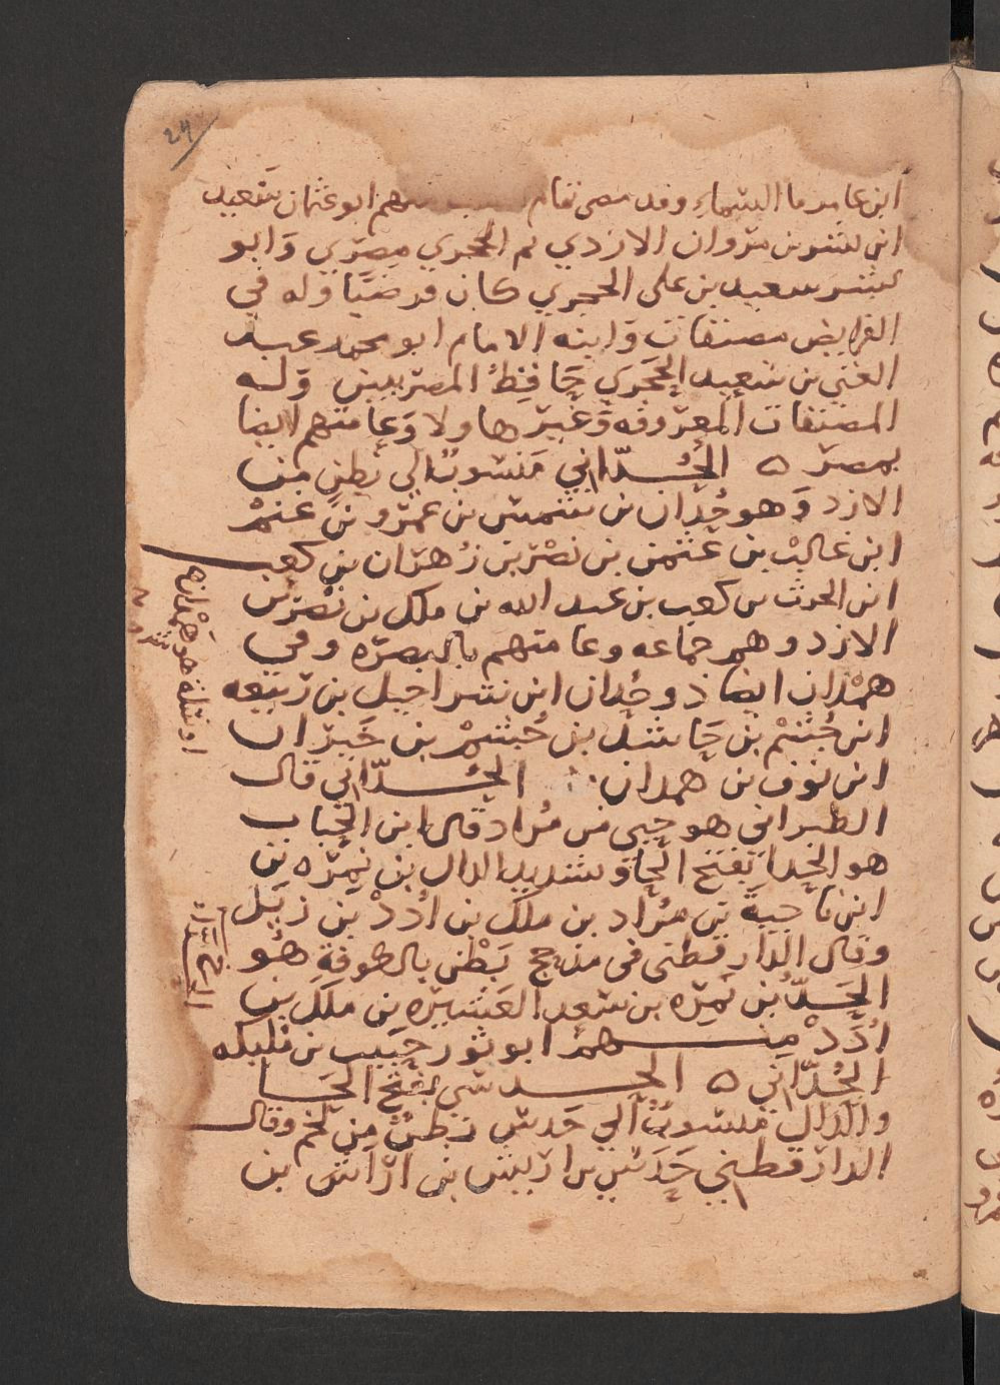 ابن عامر ما السماء وقد مضى تمام منهم ابو عثمان سعيد
ابن بشر بن مروان الازدي ثم الحجري مصري وابو
بشر سعيد بن على الحجري كان فرضيا وله في
الفرايض مصنفات وابنه الامام ابو محمد عبد
الغني بن سعيد الحجري حافظ المصريين وله
المصنفات المعروفه وغيرها ولا وعامتهم ايضا
بمصر ه الحُدّاني منسوب الي بطن من
الازد وهو حُدان بن شمس بن عمرو بن غنم
ابن غالب بن عثمن بن نصر بن زهران بن كعب
ابن الحرث بن كعب بن عبد الله بن ملك بن نصر بن
الازد وهم جماعه وعامتهم بالبصره وفى
همدان ايضا ذو حُدان ابن شراحيل بن ربيعه
ابن جُشَم بن حاشد بن جُشَم بن خيران
ابن نوف بن همدان الحُدّاني قال
الطبراني هو حي من مُراد قال ابن الحباب
هو الحدا بفتح الحا وتشديد الدال بن نمره بن
ابن ناجية بن مراد بن ملك بن اُدَد بن زيد
وقال الدارقطنى فى مذحج بَطْن بالكوفة هُو
الحَدّ بن نَمِرَه بن سعد العشيره بن ملك بن
اُدَدْ منهم ابو ثور حبيب بن مليكه
الحُدّاني ه الحدسي بفتح الحا
والدال منسوب الي حدس بطن من لخم وقال
الدارقطني حَدَس بن اريش بن اراش بن
اوسلة هو همدان
24